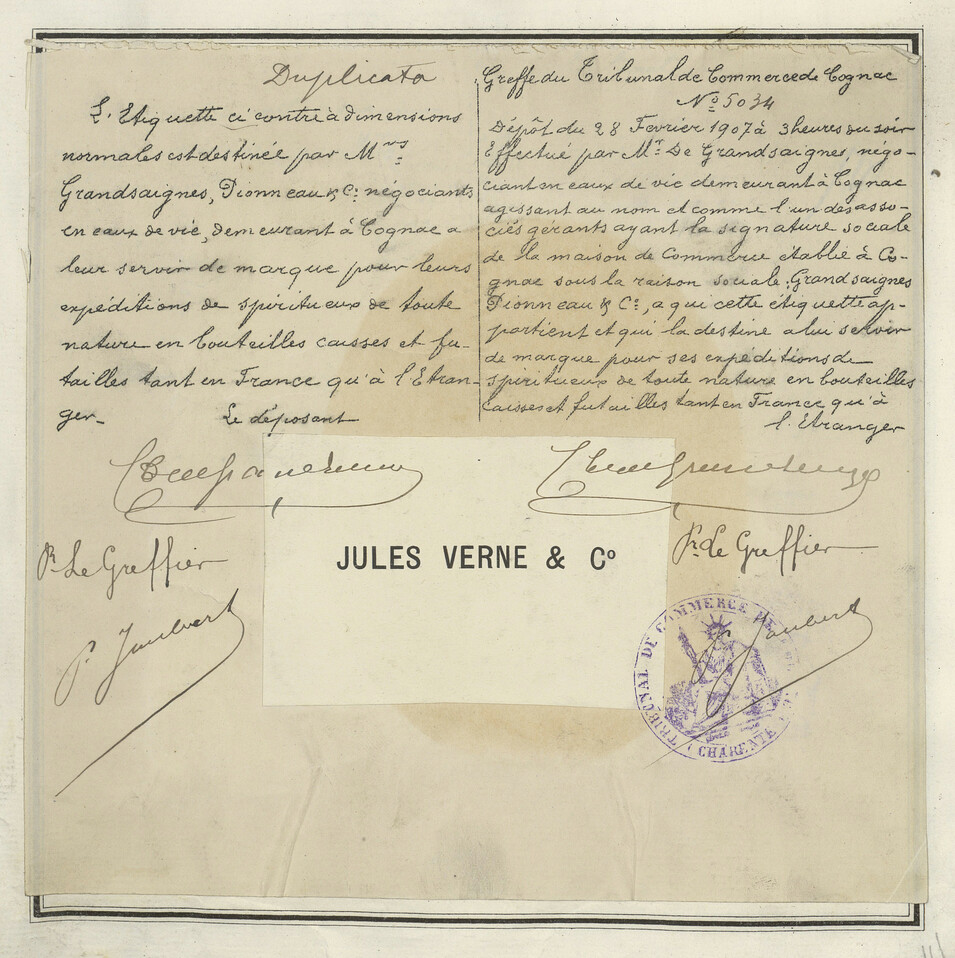 Duplicata
L'Etiquette ci contre à dimensions
normales est destinée par Mrs
Grandsaignes, Pionneau & Cie négociants
en eaux de vie, demeurant à Cognac a
leur servir de marque pour leurs
expéditions de spiritueux de toute
nature en bouteilles caisses et fu-
tailles tant en France qu'à l'Etran-
ger_
Le déposant
Pr Le Greffier
P. Jaubert
Greffe du Tribunal de Commerce de Cognac
No 5034
Dépôt du 28 Fevrier 1907 à 3 heures du soir
Effectué par Mr De Grandsaignes, négo-
ciant en eaux de vie demeurant à Cognac
agissant au nom et comme l'un des asso-
ciés gérants ayant la signature sociale
de la maison de Commerce établie à Co-
gnac sous la raison sociale: Grandsaignes
Pionneau & Cie, a qui cette étiquette ap-
partient et qui la destine a lui servir
de marque pour ses expéditions de
spiritueux de toute nature en bouteilles
caisses et futailles tant en France qu'à
l'Etranger
Pr Le Greffier
P. Jaubert
JULES VERNE & Co
TRIBUNAL DE COMMERCE DE
(CHARENTE)